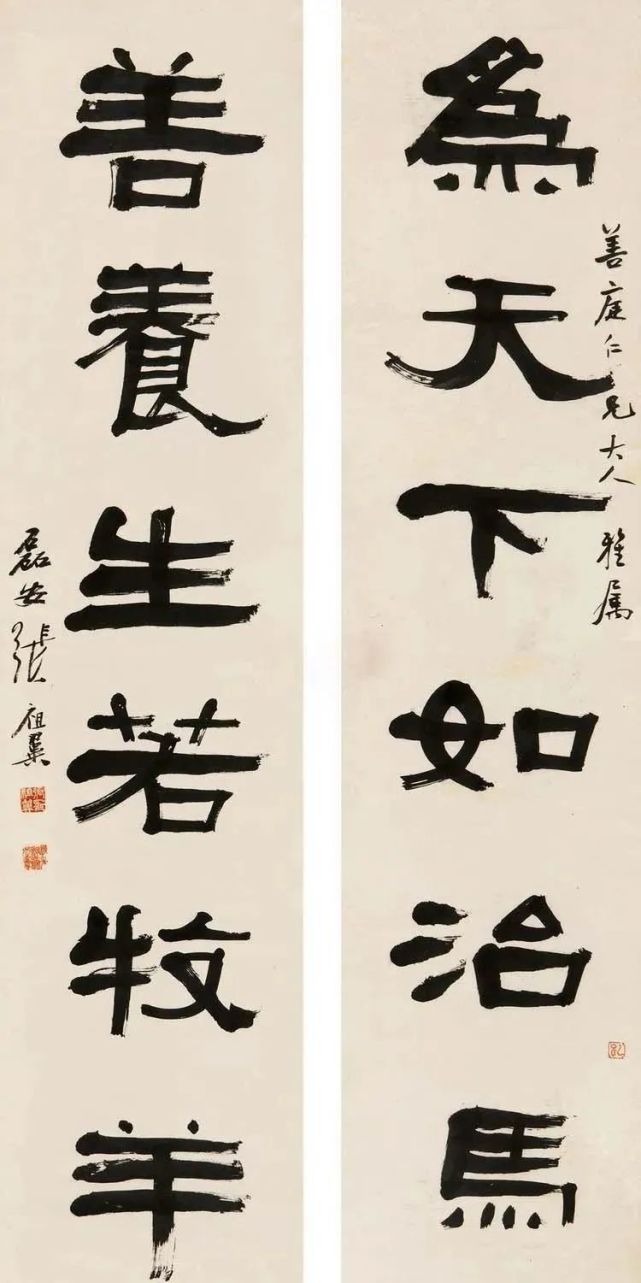 為天下如治馬
善庭仁兄大人 雅属
善養生若牧羊
磊盦張祖翼